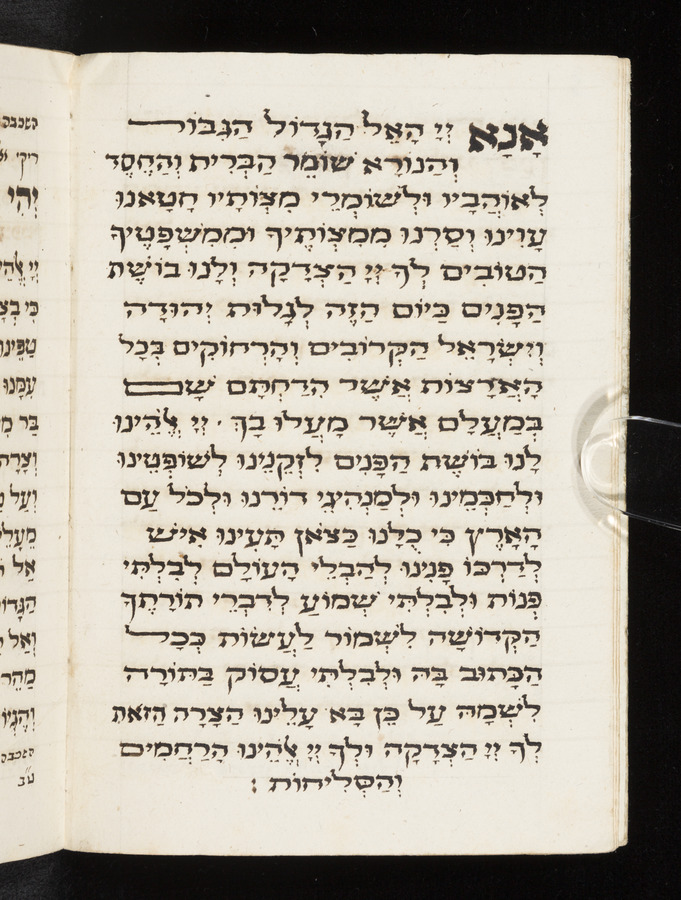 אָנָא יְיָ הָאֵל הַגָּדוֹל הַגִּבּוֹר
וְהַנּוֹרָא שׁוֹמֵר הַבְּרִית וְהַחֶסֶד
לְאוֹהֲבָיו וּלְשׁוֹמְרֵי מִצְוֹתָיו חָטָאנוּ
עָוִינוּ וְסַרְנוּ מִמִּצְוֹתֶיךָ וּמִמִּשְׁפָּטֶיךָ
הַטּוֹבִים לְךָ יְיָ הַצְּדָקָה וְלָנוּ בּוֹשֶׁת
הַפָּנִים כַּיּוֹם הַזֶּה לְגָלוּת יְהוּדָה
וְיִשְׂרָאֵל הַקְּרוֹבִים וְהָרְחוֹקִים בְּכָל
הָאֲרָצוֹת אֲשֶׁר הִדַּחְתָּם שָׁם
בְּמַעֲלָם אֲשֶׁר מָעֲלוּ בָךְ · יְיָ אֱלֹהֵינוּ
לָנוּ בּוֹשֶׁת הַפָּנִים לִזְקֵנֵינוּ לְשׁוֹפְטֵינוּ
וּלְחַכְמֵינוּ וּלְמַנְהִיגֵי דוֹרֵנוּ וּלְכֹל עַם
הָאָרֶץ כִּי כֻלָּנוּ כַּצֹּאן תָּעִינוּ אִישׁ
לְדַרְכּוֹ פָּנִינוּ לְהַבְלֵי הָעוֹלָם לְבִלְתִּי
פְּנוֹת וּלְבִלְתִּי שְׁמוֹעַ לְדִבְרֵי תוֹרָתְךָ
הַקְּדוֹשָׁה לִשְׁמוֹר לַעֲשׂוֹת כְּכָל
הַכָּתוּב בָּהּ וּלְבִלְתִּי עֲסוֹק בַּתּוֹרָה
לִשְׁמָהּ עַל כֵּן בָּא עָלֵינוּ הַצָּרָה הַזֹּאת
לְךָ יְיָ הַצְּדָקָה וּלְךָ יְיָ אֱלֹהֵינוּ הָרַחֲמִים
וְהַסְּלִיחוֹת :